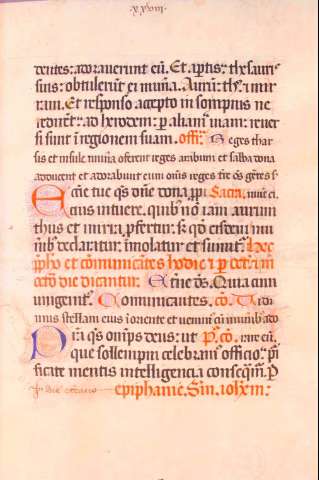 ·xxviii·
dentes: adoraverunt eū. Et aptis thesauris
suis: obtulerūt ei mun̄a. Aurū: thꝰ ⁊ mir
ram. Et responso accepto in sompnis ne
redirēt: ad herodem: ꝑ aliam uiam: reuer
si sunt ī regionem suam. off̄. Reges thar
sis et insule mun̄a oferent reges arabum et saba dona
adducent et adorabunt eum oīes reges tr̄e oēs gētes s̄
Eccl̄ie tue qs̄ dn̄e dona ꝓpi Sacra.
cius intuere. quibꝰ nō iam aurum
thus et mirra ꝓfertur. s̄ qd̄ eisdem mu
n̄ibꝰ declaratur. īmolatur et sumit̄.
et cōmunicātes hodie ⁊ ꝑ
dicantur. Et īe dēs. Quia cum
unigenitꝰ. Comunicantes. cō. Vidi
mus stellam eius ī oriente et uenimꝰ cū mun̄ibꝰ ado
Pꝛ̄a qs̄ om̄ps deus: ut P. cō.
que sollempni celebramꝰ officio: pī
ficate mentis intelligencia conseqm̄. P
epiphanie. Sm̄. ioh̄em: